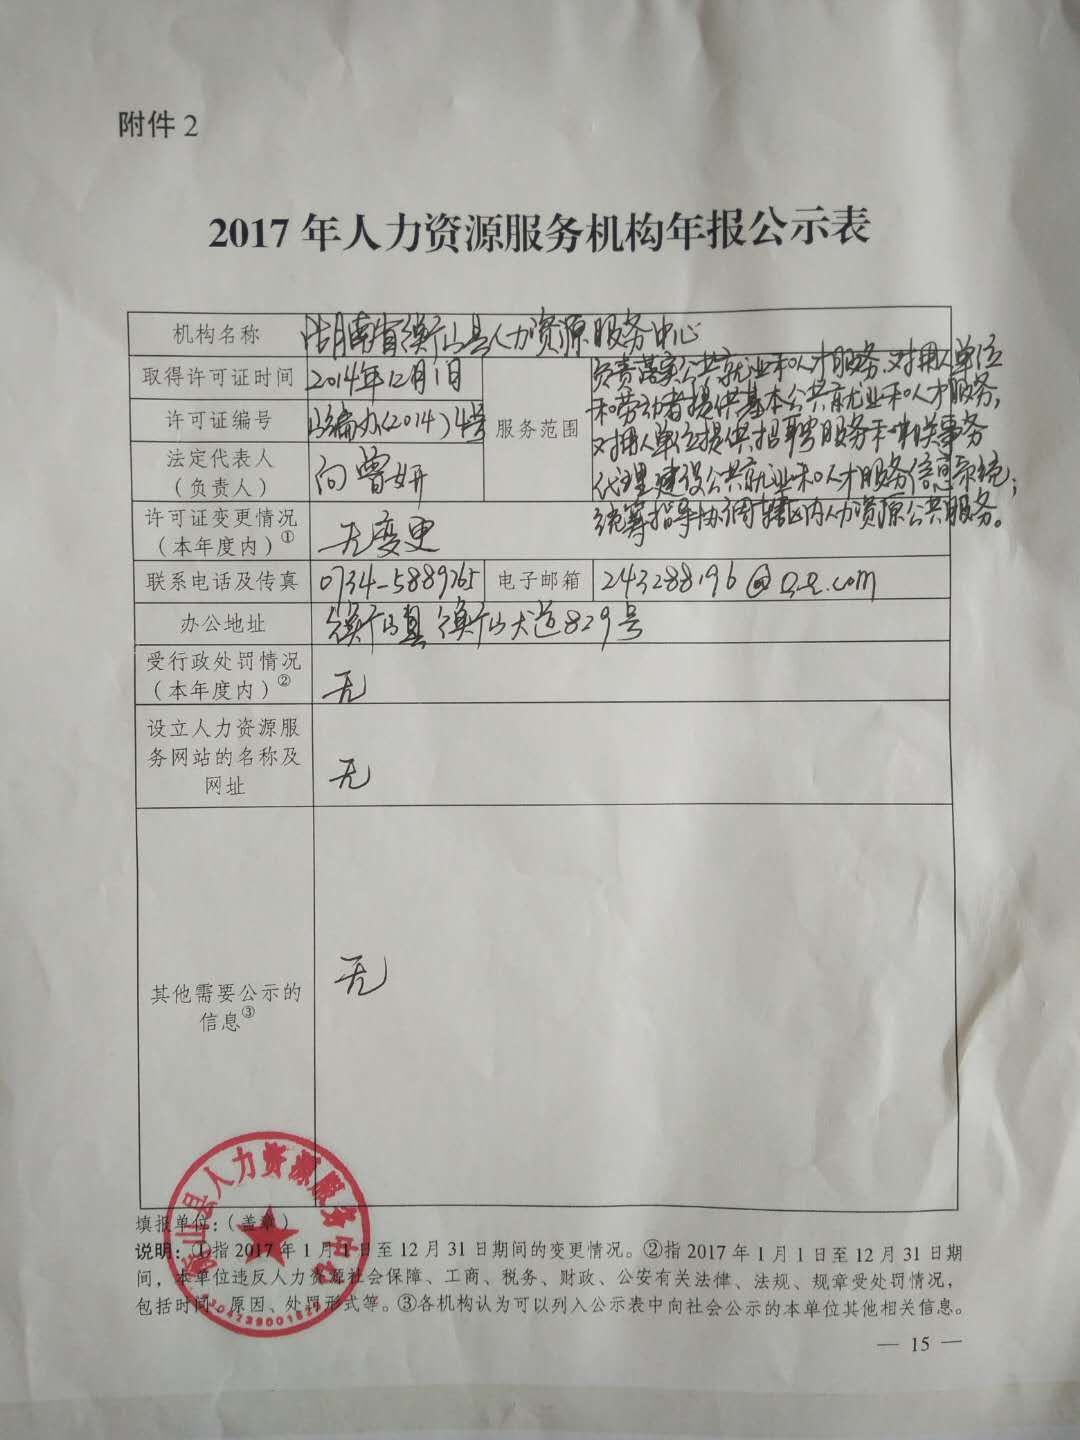 附件2
2017年人力资源服务机构年报公示表
机构名称
湖南省衡山县人力资源服务中心
取得许可证时间
2014年12月1日
许可证编号
山编办(2014)4号
法定代表人
(负责人)
向曾妍
服务范围
负责落实公共就业和人才服务,对用人单位
和劳动者提供基本公共就业和人才服务,
对用人单位提供招聘服务和相关事务
代理,建设公共就业和人才服务信息系统;
统筹指导协调辖区内人力资源公共服务。
许可证变更情况
(本年度内)①
无变更
联系电话及传真
0734-5889265
电子邮箱
243288196@qq.com
办公地址
衡山县衡山大道829号
受行政处罚情况
(本年度内)②
无
设立人力资源服
务网站的名称及
网址
无
其他需要公示的
信息③
无
填报单位:(盖章)
衡山县人力资源服务中心
说明:①指2017年1月1日至12月31日期间的变更情况。②指2017年1月1日至12月31日期
间,本单位违反人力资源社会保障、工商、税务、财政、公安有关法律、法规、规章受处罚情况,
包括时间、原因、处罚形式等。③各机构认为可以列入公示表中向社会公示的本单位其他相关信息。
— 15 —